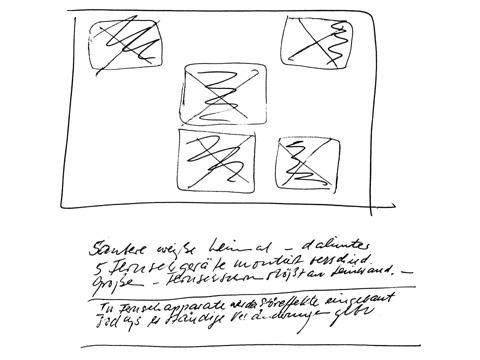 Saubere weiße Leinwand – dahinter
5 Fernsehgeräte montiert verschied.
Größe – Fernsehschirm stößt an Leinwand. –
In Fernsehapparate werden Störeffekte eingebaut
so dass es ständige Veränderungen gibt